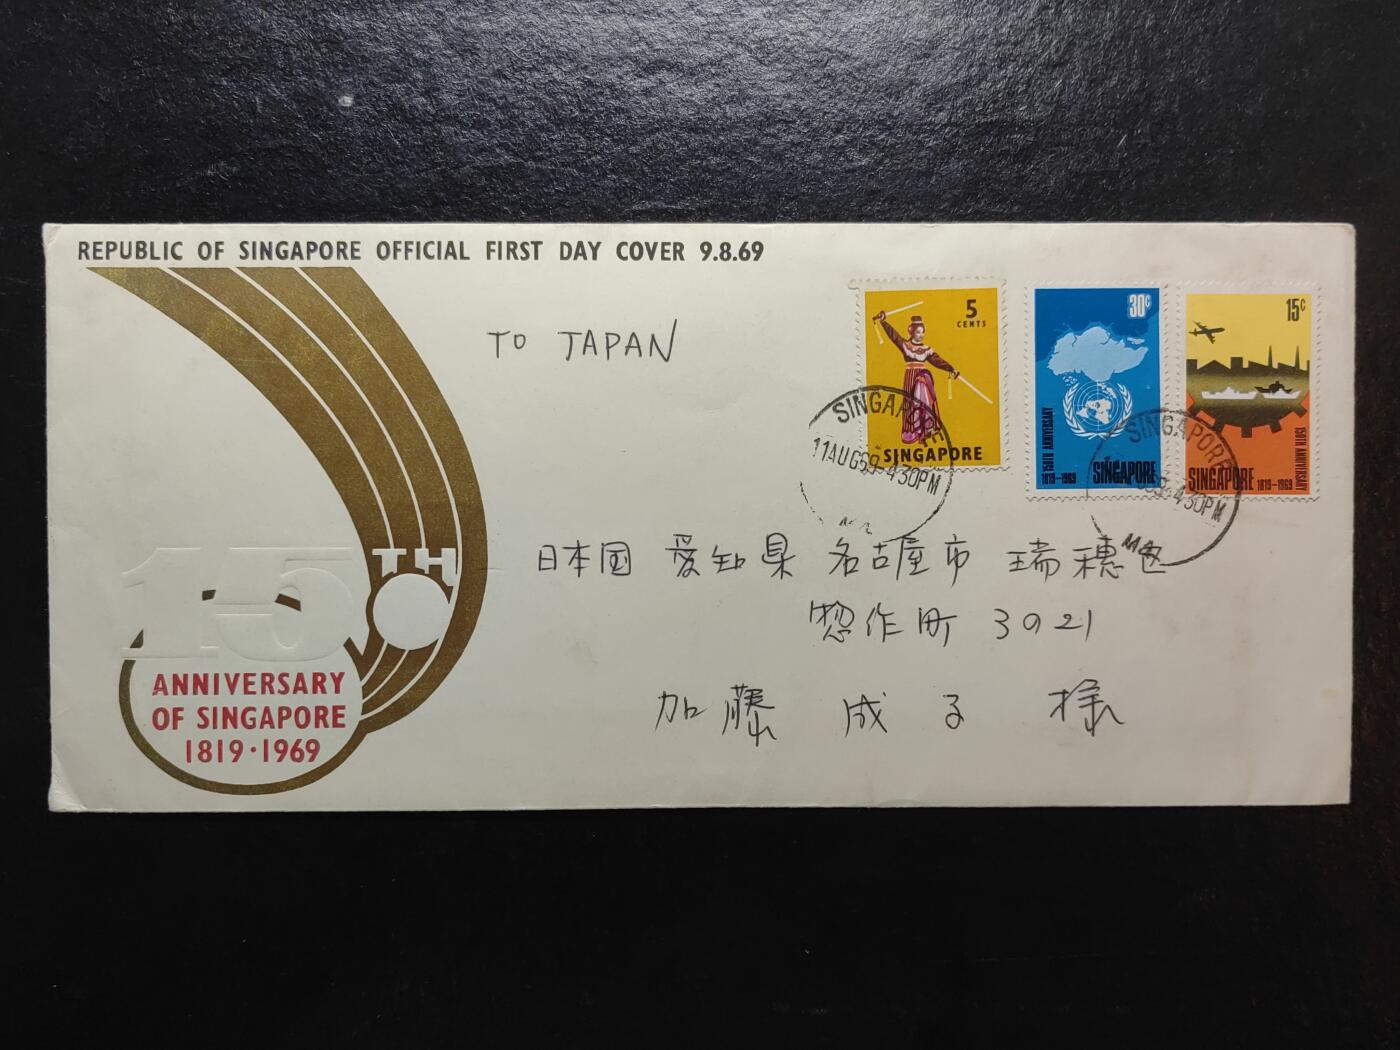 REPUBLIC OF SINGAPORE OFFICIAL FIRST DAY COVER 9.8.69
TO JAPAN
5
CENTS
SINGAPORE
30c
150TH ANNIVERSARY
1819-1969
SINGAPORE
15c
150TH ANNIVERSARY
SINGAPORE 1819-1969
SINGAPORE
11AUG69-430PM
SINGAPORE
430PM
日本国 愛知県 名古屋市 瑞穂区
惣作町 3の21
加藤 成子 様
150TH
ANNIVERSARY
OF SINGAPORE
1819·1969